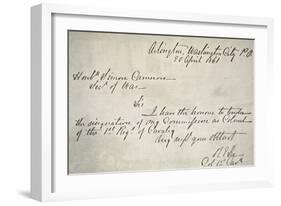 Arlington, Washington City P.O.
20 April 1861
Honble Simon Cameron
Secy of War
Sir
I have the honour to tender
the resignation of my Commission as Colonel
of the 1st Regt of Cavalry
Very respy your obt Servt
R E Lee
Col 1st Cavy